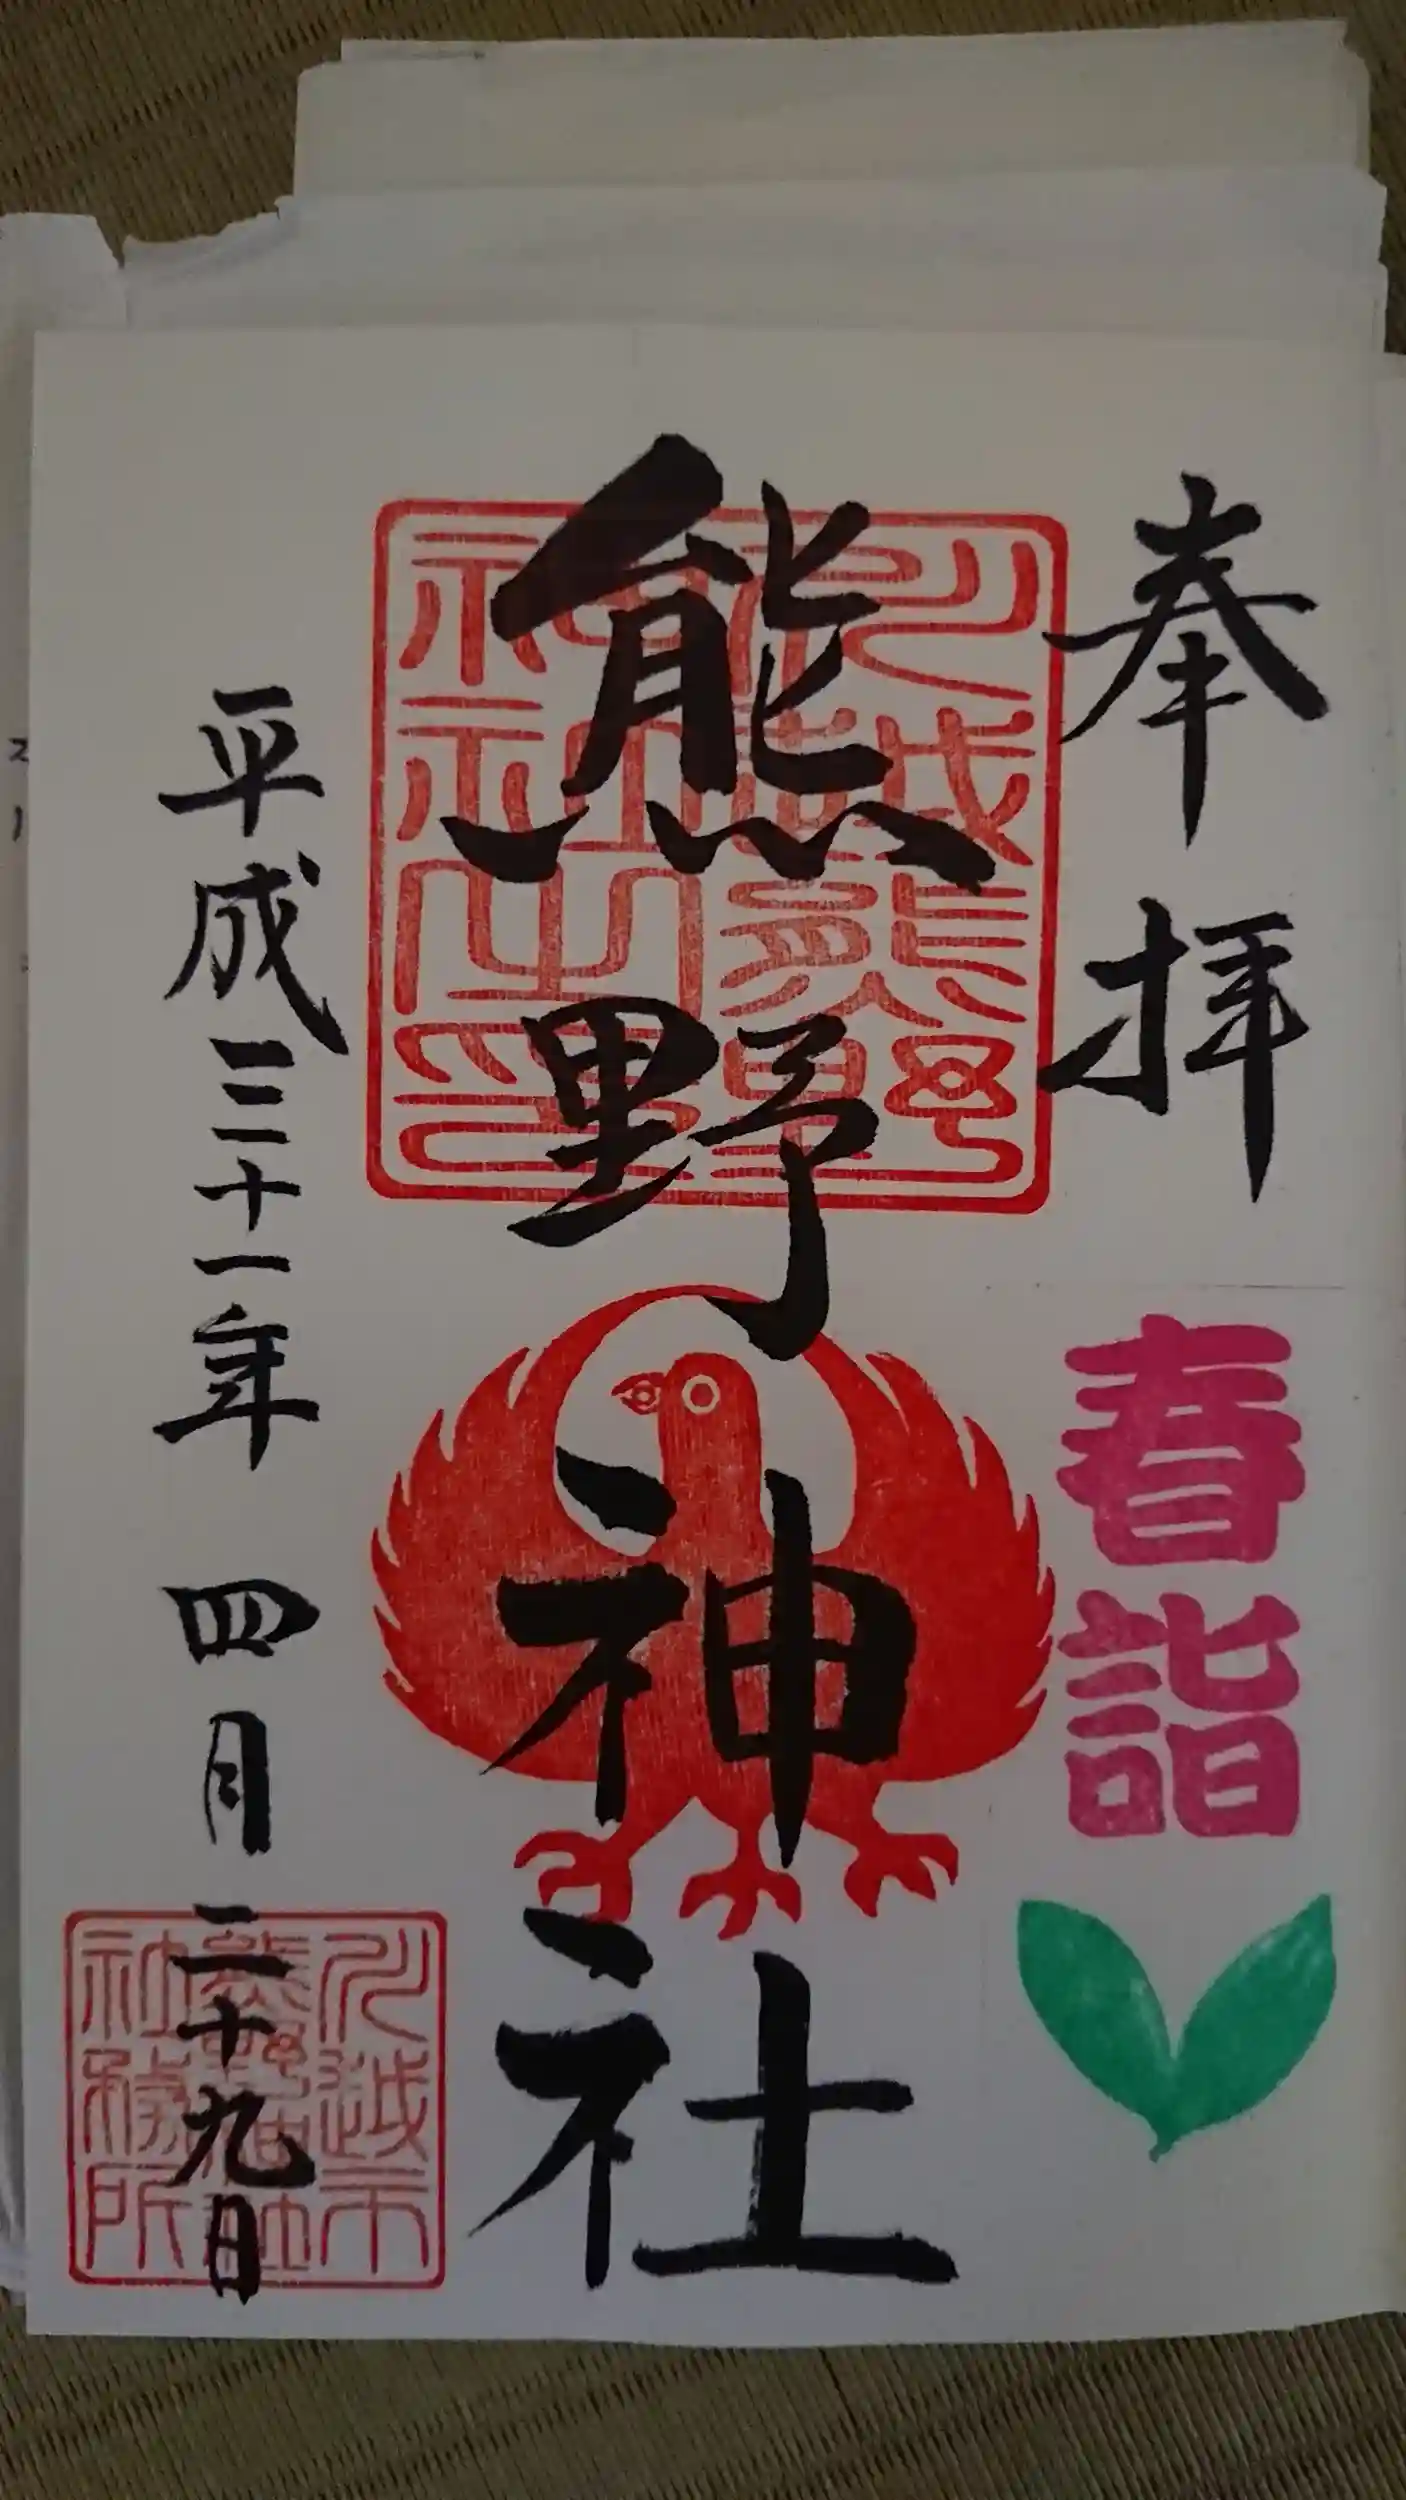 奉拝
春詣
川越熊野
神社之印
熊野神社
平成三十一年 四月二十九日
川越市
熊野神社
社務所